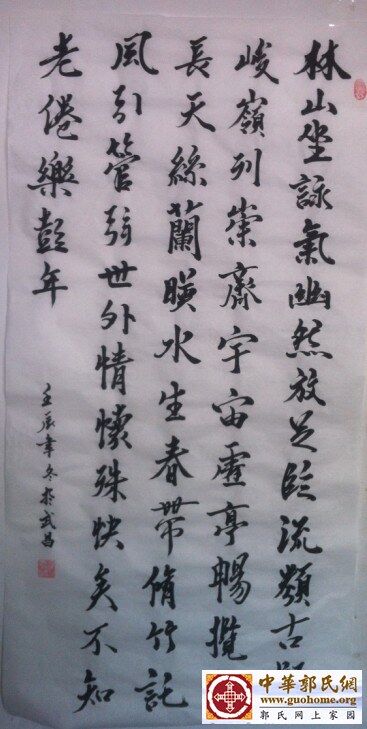 林山坐詠氣幽然放足臨流類古
峻嶺列崇齋宇宙虛亭暢攬
長天絲蘭暎水生春帶脩竹託
風引管弦世外情懷殊快矣不知
老倦樂彭年
壬辰年冬於武昌
中華郭氏網
www.guohome.org
郭氏网上家园